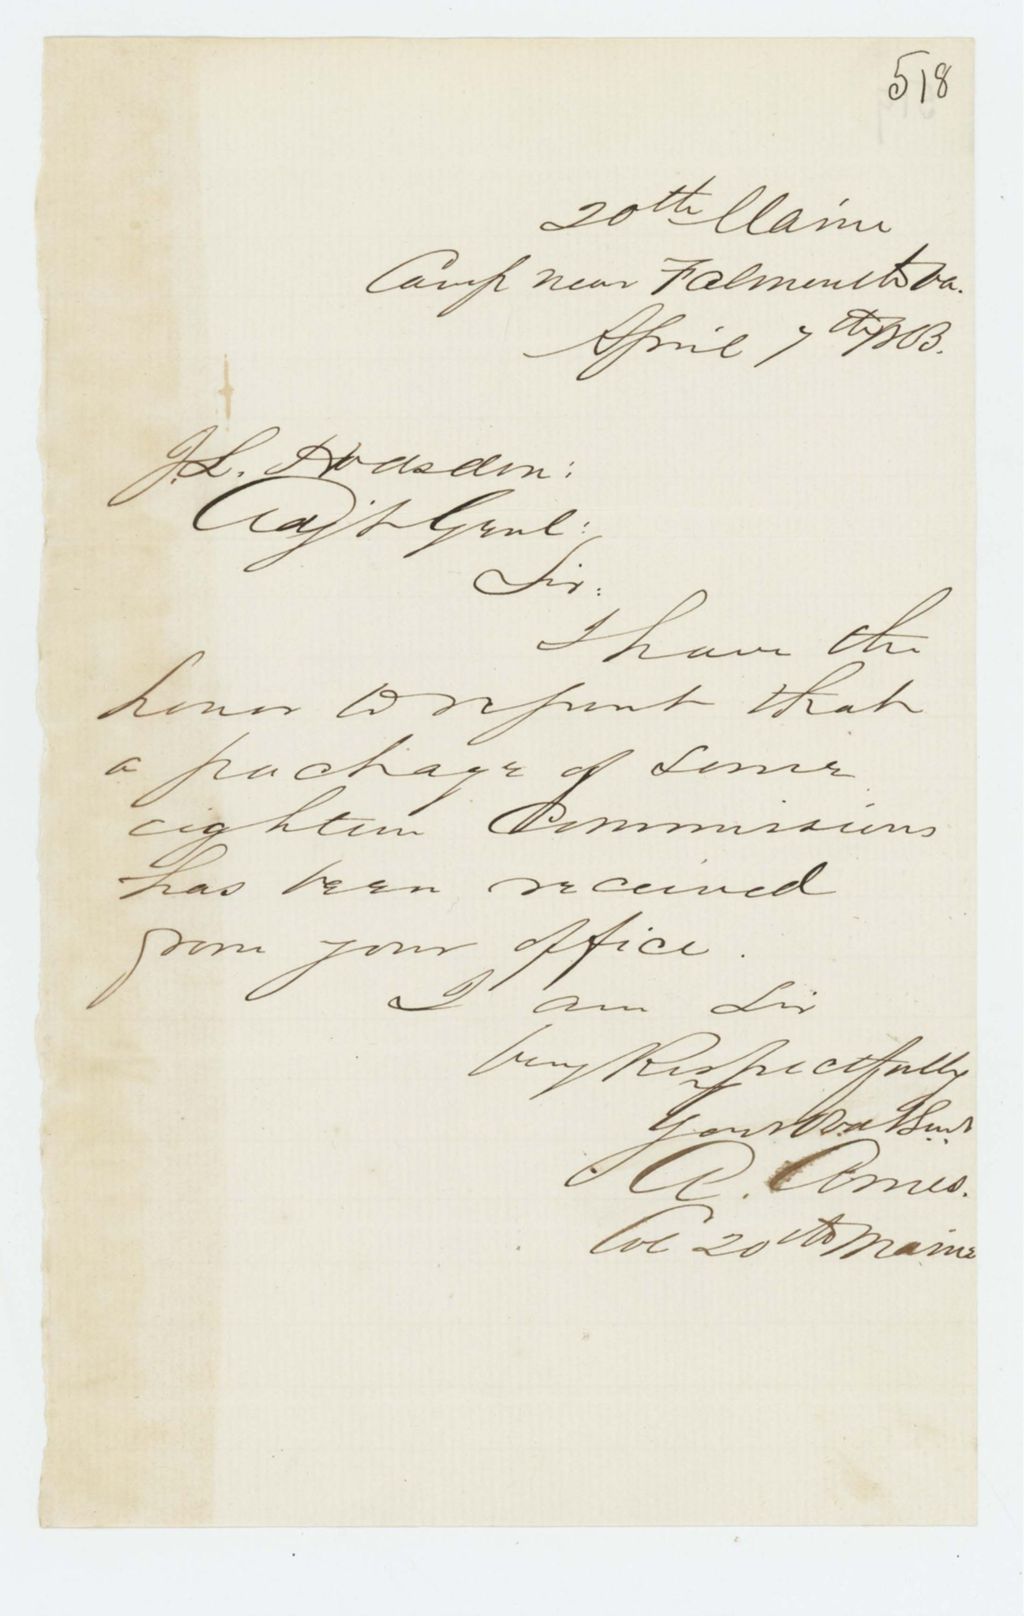 518
20th Maine
Camp near Falmouth Va.
April 7th /63.
J. L. Hodsdon:
Adjt Genl:
Sir:
I have the
honor to report that
a package of some
eighteen Commissions
has been received
from your office.
I am Sir
Very Respectfully
Your Obd Sert
A. Ames.
Col 20th Maine